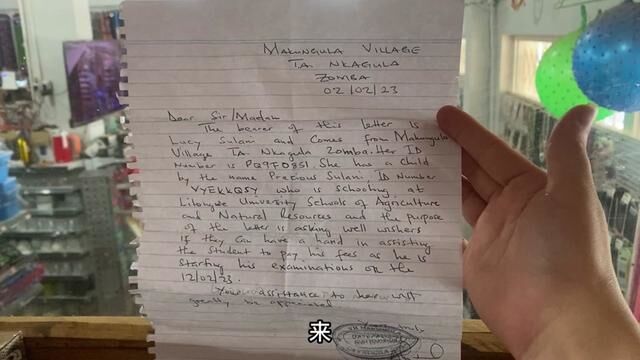 MAKUNGULA VILLAGE
T.A. NKAGULA
ZOMBA
02/02/23
Dear Sir/Madam
The bearer of this letter is
Lucy Sulani and comes from Makungula
Village T.A. Nkagula Zomba. Her ID
Number is She has a child
by the name Precious Sulani ID Number
VYEKKQSY who is schooling at
Lilongwe University Schools of Agriculture
and Natural Resources and the purpose
of the letter is asking well wishers
if they can have a hand in assisting
the student to pay his fees as he is
starting his examinations on the
12/02/23.
Your assistance to her will
greatly be appreciated
来